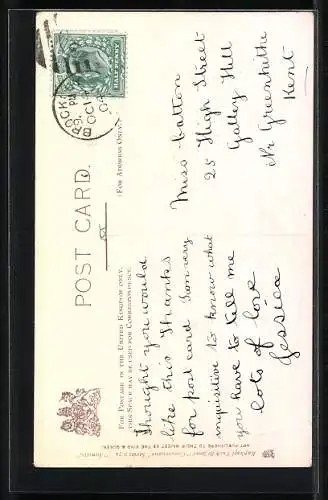 POST CARD.
(FOR ADDRESS ONLY.)
FOR POSTAGE IN THE UNITED KINGDOM ONLY,
THIS SPACE MAY BE USED FOR CORRESPONDENCE.
HALF PENNY
BROCK
OC 1
04
Thought you would
like this Thanks
for post card I am very
inquisitive to know what
you have to tell me
lots of love
Jessica
Miss Batton
25 High Street
Galley Hill
Nr Greenhithe
Kent
Raphael Tuck & Sons'
ART PUBLISHERS TO THEIR MAJESTIES THE KING & QUEEN.